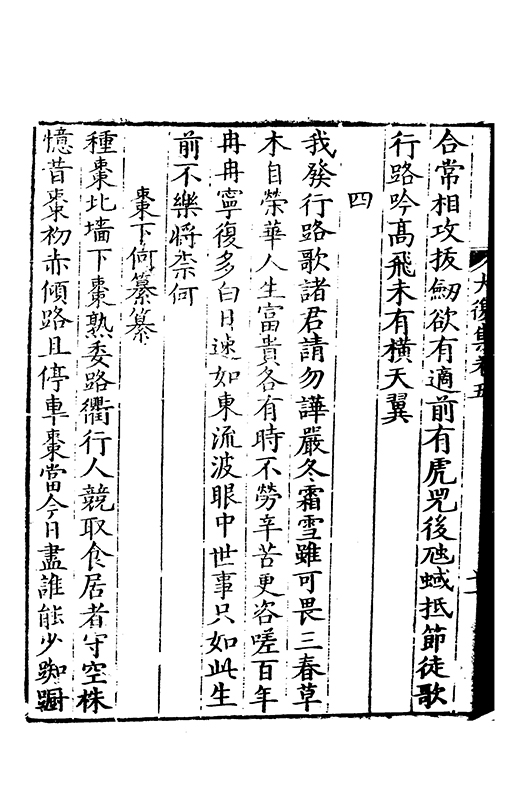 大復集卷五
合常相攻拔劒欲有適前有虎兕後虺蜮抵節徒歌
行路吟高飛未有橫天翼
四
我發行路歌諸君請勿譁嚴冬霜雪雖可畏三春草
木自榮華人生富貴各有時不勞辛苦更咨嗟百年
冉冉寧復多白日速如東流波眼中世事只如此生
前不樂將柰何
棗下何纂纂
種棗北墻下棗熟委路衢行人競取食居者守空株
憶昔棗初赤傾路且停車棗當今日盡誰能少踟蹰